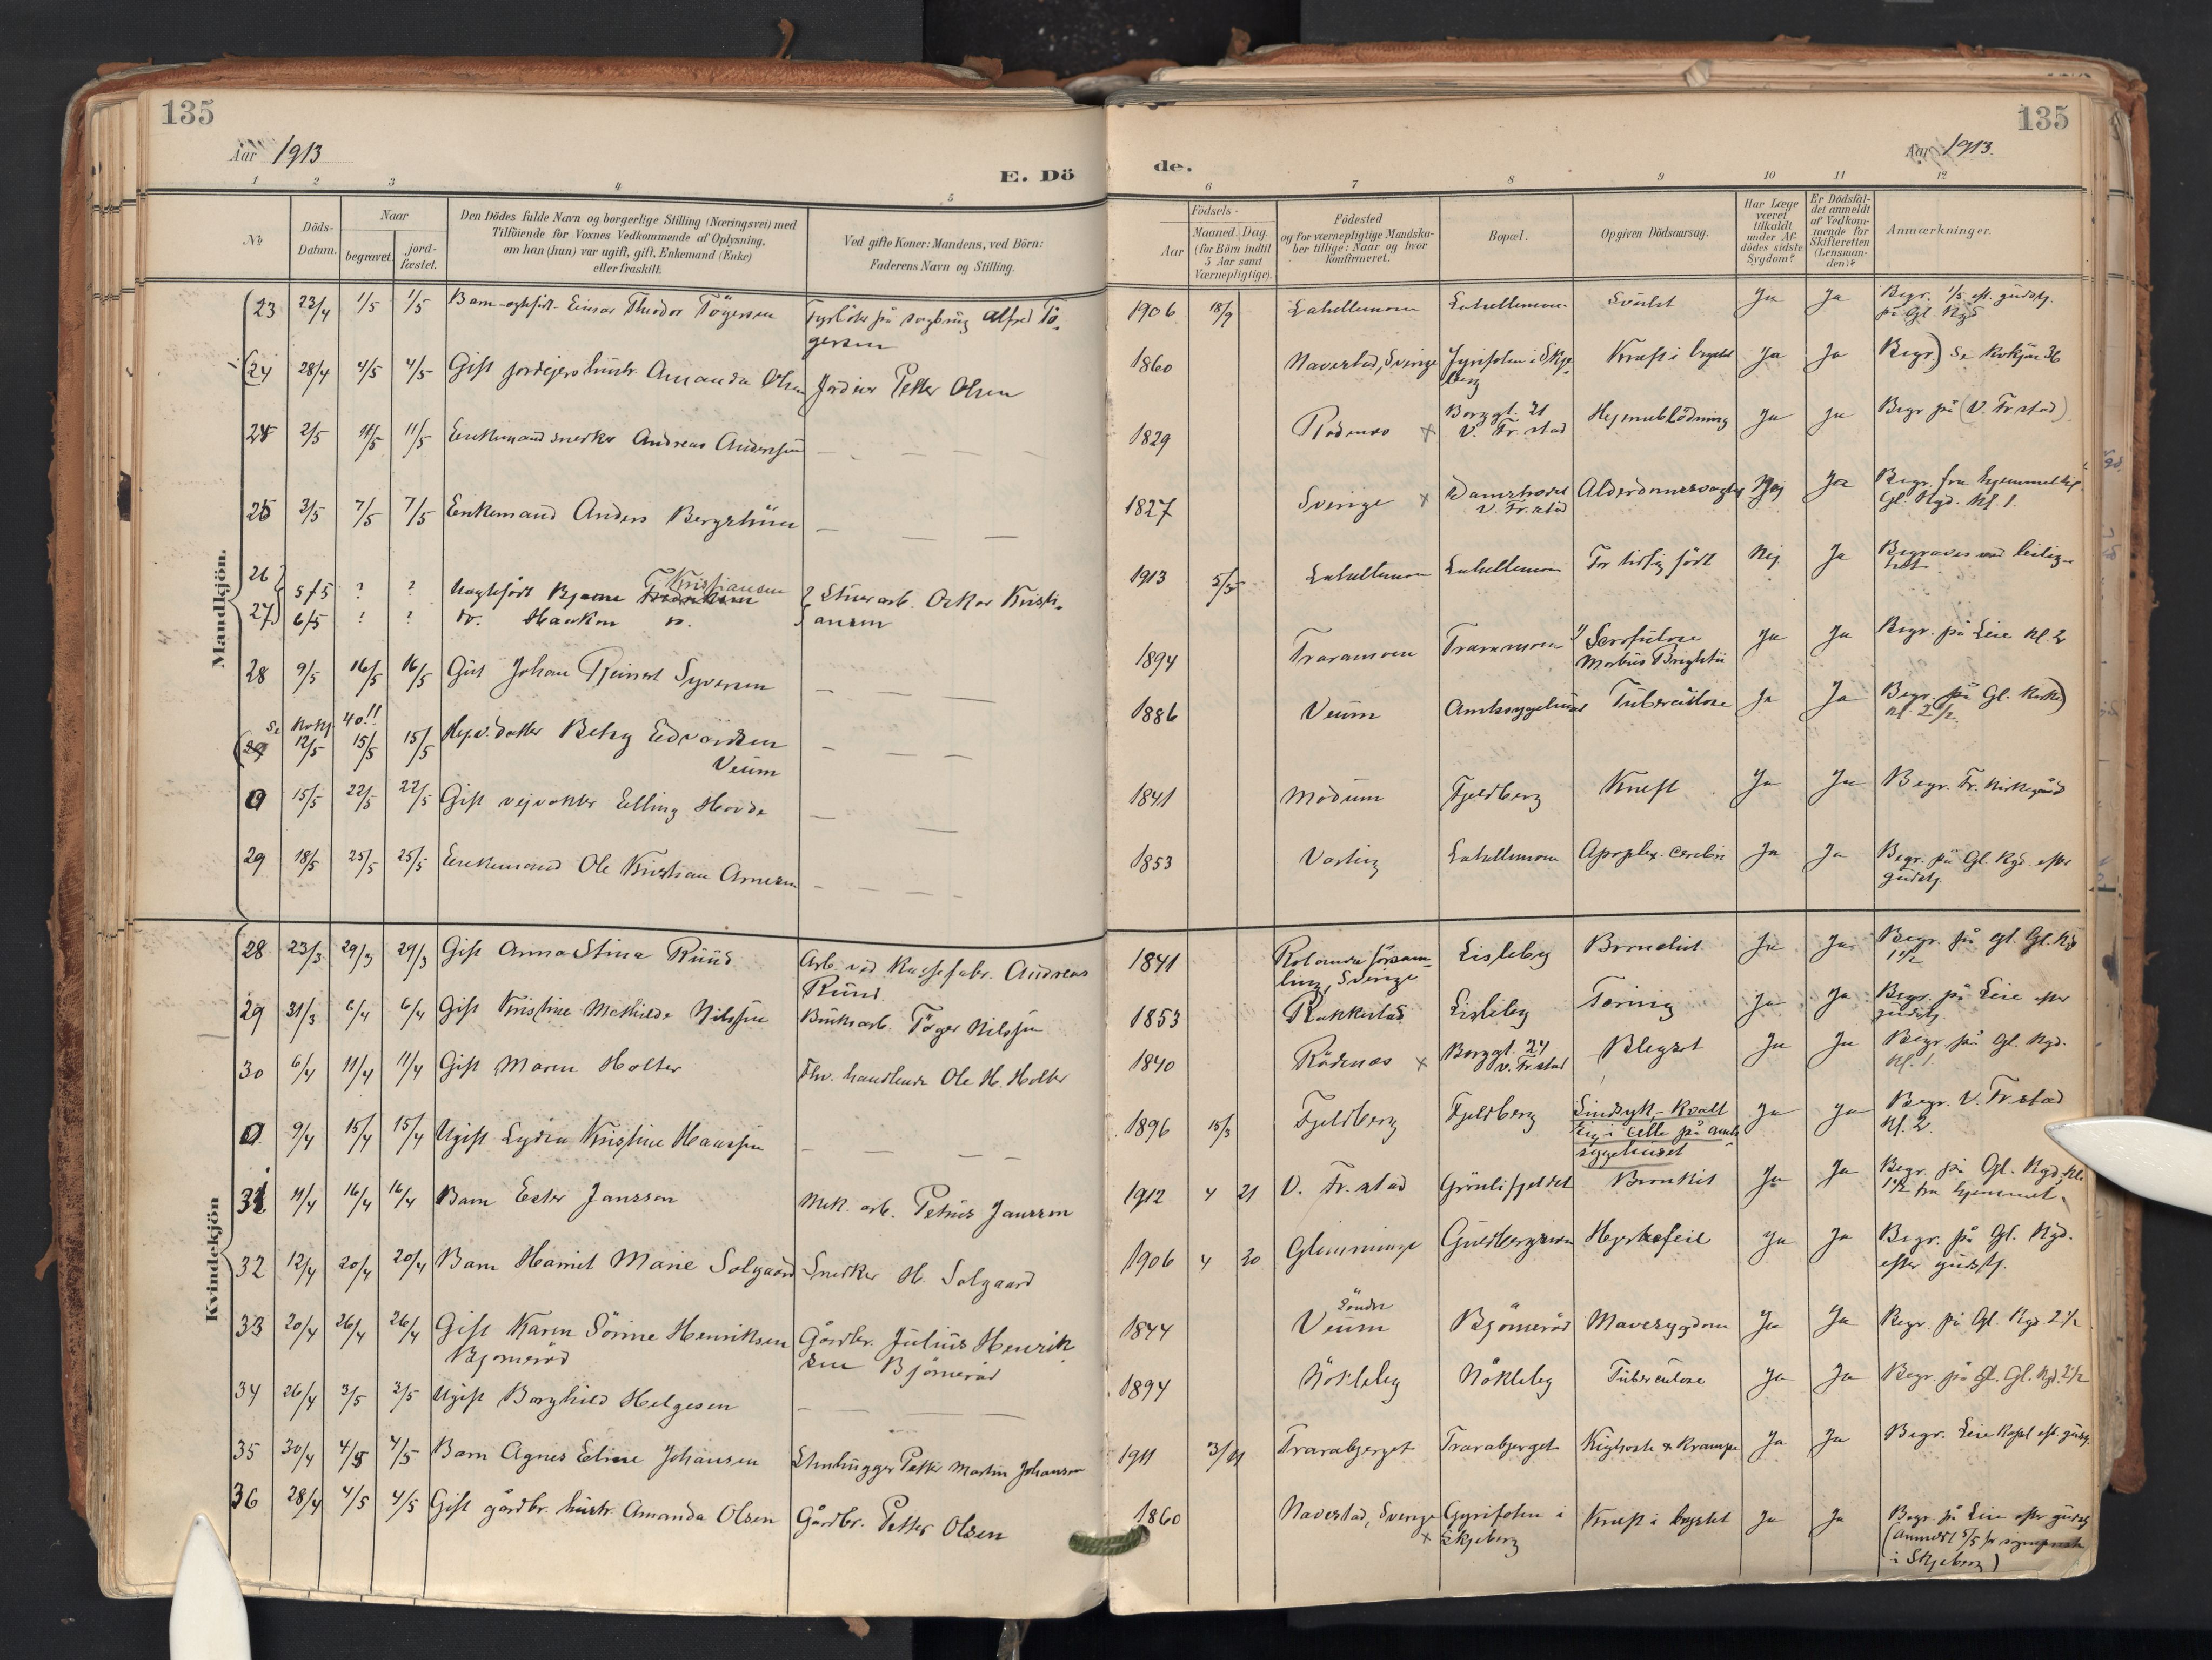 135
Aar 1913
E. Dö
1 2 3 4 5
No
Döds-Datum.
Naar
begravet.
jord-fæstet.
Den Dödes fulde Navn og borgerlige Stilling (Næringsvei) med
Tilföiende for Voxnes Vedkommende af Oplysning,
om han (hun) var ugift, gift, Enkemand (Enke)
eller fraskilt.
Ved gifte Koner: Mandens, ved Börn:
Faderens Navn og Stilling.
Mandkjön.
23 23/4 1/5 1/5 Barn - Einar Theodor Tögersen Fyrböter på Alfred Tö-
gersen
24 28/4 4/5 4/5 Gift jordejers hustr. Amanda Olsen Jordeier Petter Olsen
24 2/5 11/5 11/5 Enkemand snerker Andreas Anderssen
25 3/5 7/5 7/5 Enkemand Anders Bergström
26 5/5 ? ? Uægtefödt Bjarne Kristiansen Stuerarb. Oskar Kristi-
27 6/5 ? ? do. Haakon do. ansen
28 9/5 16/5 16/5 Gut Johan Reinert Syversen
Se Kvkj 40!!
29 12/5 15/5 15/5 datter Betsy Edvardsen
Veum
0 15/5 22/5 22/5 Gift veivokter Elling Hovde
29 18/5 25/5 25/5 Enkemand Ole Kristian Arnesen
Kvindekjön
28 23/3 29/3 29/3 Gift Anna Stina Ruud Arb. ved Andreas
Ruud
29 31/3 6/4 6/4 Gift Kristine Mathilde Nilssen Bruksarb. Töger Nilssen
30 6/4 11/4 11/4 Gift Maren Holter Fhv. handlende Ole H. Holter
0 9/4 15/4 15/4 Ugift Lydia Kristine Hanssen
31 11/4 16/4 16/4 Barn Ester Janssen Mek. arb. Petrus Janssen
32 12/4 20/4 20/4 Barn Harriet Marie Solgaard Snerker H. Solgaard
33 20/4 26/4 26/4 Gift Karen Sörine Henriksen Gårdbr. Julius Henrik
Bjørneröd sen Bjørneröd
34 26/4 3/5 3/5 Ugift Borghild Helgesen
35 30/4 4/5 4/5 Barn Agnes Eline Johansen Stenhugger Petter Martin Johansen
36 28/4 4/5 4/5 Gift gårdbr. hustr. Amanda Olsen Gårdbr. Petter Olsen
135
Aar 1913
de.
6 7 8 9 10 11 12
Födsels-
Aar
Maaned. Dag
(for Börn indtil
5 Aar samt
Værnepligtige).
Födested
og for værnepligtige Mandska-
ber tillige: Naar og hvor
konfirmeret.
Bopæl.
Opgiven Dödsaarsag.
Har Læge
været
tilkaldt
under Af-
dödes sidste
Sygdom?
Er Dödsfal-
det anmeldt
af Vedkom-
mende for
Skifteretten
(Lensman-
den)?
Anmærkninger.
1906 18/9 Lahellemoen Lahellemoen Svulst Ja Ja Begr. 1/5 eft. gudstj.
på Gl. Kgd
1860 Naverstad, Sverige i Skje-
berg Kræft i brystet Ja Ja Begr.) Se Kvkjön 36
1829 Rödenæs x Borggt. 21
V. Fr.stad Hjerneblödning Ja Ja Begr på (V. Fr.stad)
1827 Sverige x
V. Fr.stad Alderdomssvaghed Nej Ja Begr. fra hjemmet
Gl. Kgd. Kl. 1.
1913 5/5 Lahellemoen Lahellemoen For tidlig födt Nej Ja Begraves ved leilig-
het
1894 Traramoen Traramoen Scrofulose
Morbus Brightii Ja Ja Begr. på Leie Kl. 2
1886 Veum Amtssygehuset Tuberculose Ja Ja Begr. på Gl. Kirke)
Kl. 2 1/2.
1841 Modum Fjeldberg Kræft Ja Ja Begr. Fr. Kirkegård
1853 Varteig Lahellemoen Apoplex. cerebri Ja Ja Begr. på Gl. Kgd. efter
gudstj.
1841 försam-
ling, Sverige Lisleby Ja Ja Begr. på Gl. Kgd
1 1/2
1853 Rakkestad Lisleby Tæring Ja Ja Begr. på Leie efter
gudstj.
1840 Rödenæs x Borggt. 24
V. Fr.stad Blegsot Ja Ja Begr. på Gl. Kgd.
Kl. 1
1896 15/3 Fjeldberg Fjeldberg Sindsyk - kvalt
sig i celle på amts
sygehuset Ja Ja Begr. V. Fr.stad
Kl. 2.
1912 4 21 V. Fr.stad Grönlifjeldet Bronkit Ja Ja Begr. på Gl. Kgd. Kl.
1 1/2 fra hjemmet.
1906 4 20 Glemminge Hjertefeil Ja Ja Begr. på Gl. Kgd.
efter gudstj.
1844 Söndre
Veum Bjørneröd Mavesygdom Ja Ja Begr. på Gl. Kgd 2 1/2
1894 Nökleby Nökleby Tuberculose Ja Ja Begr. på Gl. Kgd. 2 1/2
1911 3/11 Trarabjerget Trarabjerget Kighoste & Krampe Ja Ja Begr. Leie Kapel eft. gudstj.
1860 Naverstad, Sverige x i
Skjeberg Kræft i brystet Ja Ja Begr. på Leie efter gudstj
(anmeldt 5/5 for sognepræst
i Skjeberg)